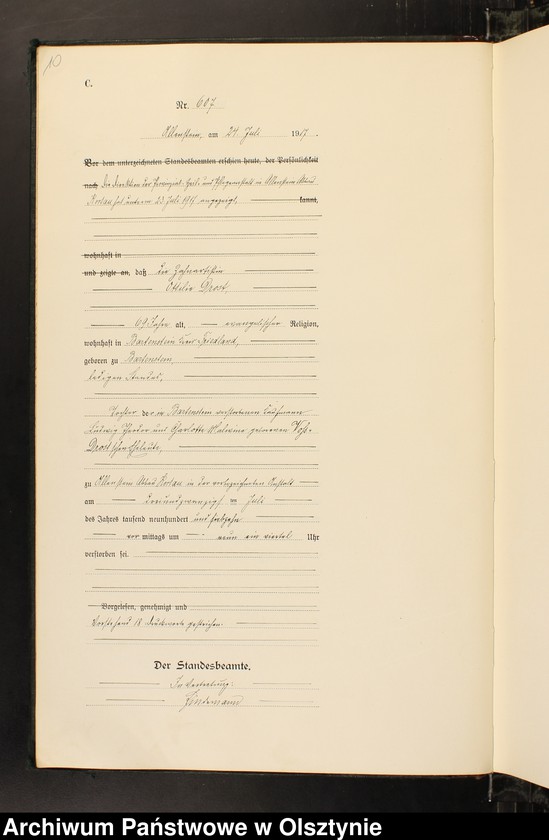 10
C.
Nr. 607
Allenstein, am 24. Juli 1917.
Vor dem unterzeichneten Standesbeamten erschien heute, der Persönlichkeit
nach Die Direktion der Provinzial-Heil- und Pflegeanstalt in Allenstein Abbau
Kortau hat unterm 23. Juli 1917 angezeigt, kannt,
wohnhaft in
und zeigte an, daß die
Ottilie Drost,
69 Jahre alt, evangelischer Religion,
wohnhaft in Bartenstein Kreis Friedland,
geboren zu Bartenstein,
ledigen Standes,
Tochter der in Bartenstein verstorbenen Kaufmann
Ludwig und Charlotte geborenen
Drost'schen Eheleute,
zu Allenstein Abbau Kortau in der vorbezeichneten Anstalt
am dreiundzwanzigsten Juli
des Jahres tausend neunhundert und siebzehn
vor mittags um neun ein viertel Uhr
verstorben sei.
Vorgelesen, genehmigt und
Vorstehend 18 Druckworte gestrichen.
Der Standesbeamte.
In Vertretung:
Archiwum Państwowe w Olsztynie